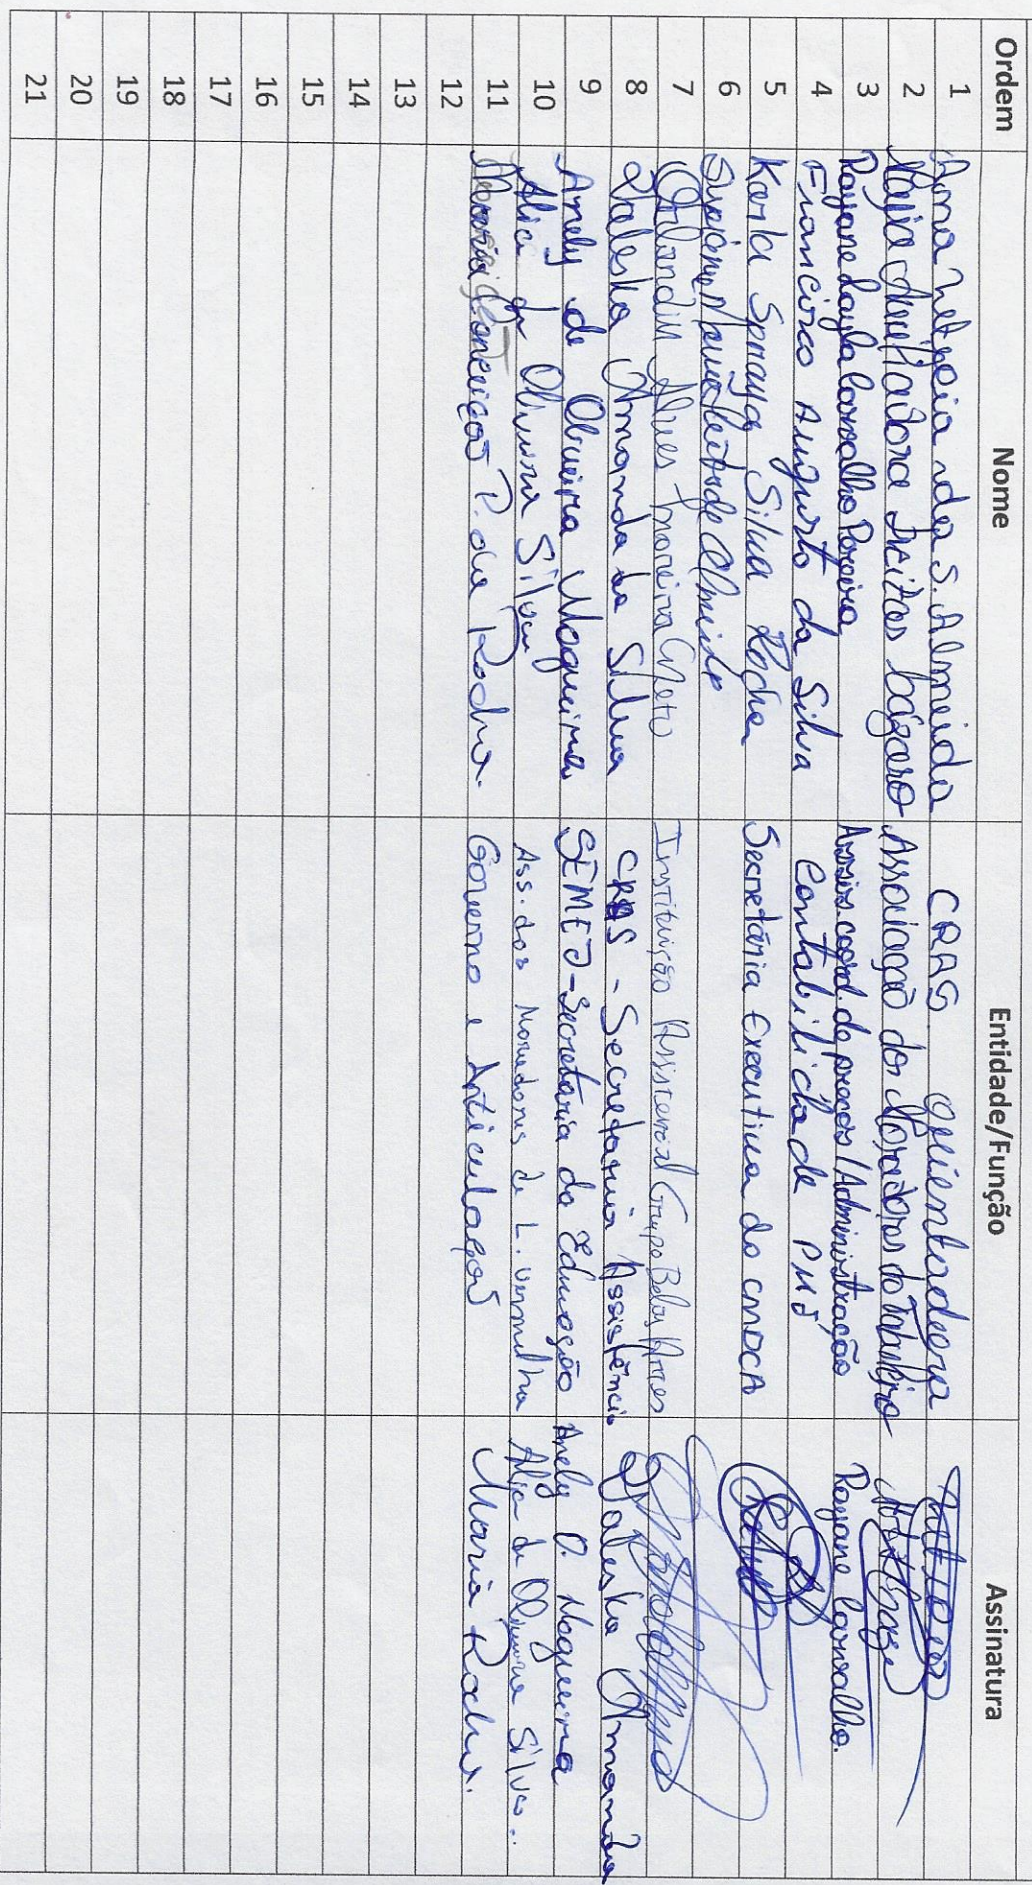 Ordem Nome Entidade/Função Assinatura
1 Ana S. Almeida CRAS Orientadora
2 Freitas Associação dos Moradores do Tabuleiro
3 Rayane Layla Carvalho Pereira Assis. coord. de /Administração Rayane Carvalho.
4 Francisco Augusto da Silva Contabilidade PMJ
5 Karla Silva Rocha Secretária Executiva do CMDCA
6 Maria Leite de Almeida
7 Alves Moreira Neto Instituição Assistencial Grupo Belas Artes
8 Amanda da Silva CRAS - Secretaria Assistência Amanda
9 Anely de Oliveira Nogueira SEMED-Secretaria da Educação Anely O. Nogueira
10 Alice de Oliveira Silva Ass. dos Moradores de L. Vermelha Alice de Oliveira Silva.
11 Maria Conceição P. da Rocha. Governo e Articulação Maria Rocha.
12
13
14
15
16
17
18
19
20
21